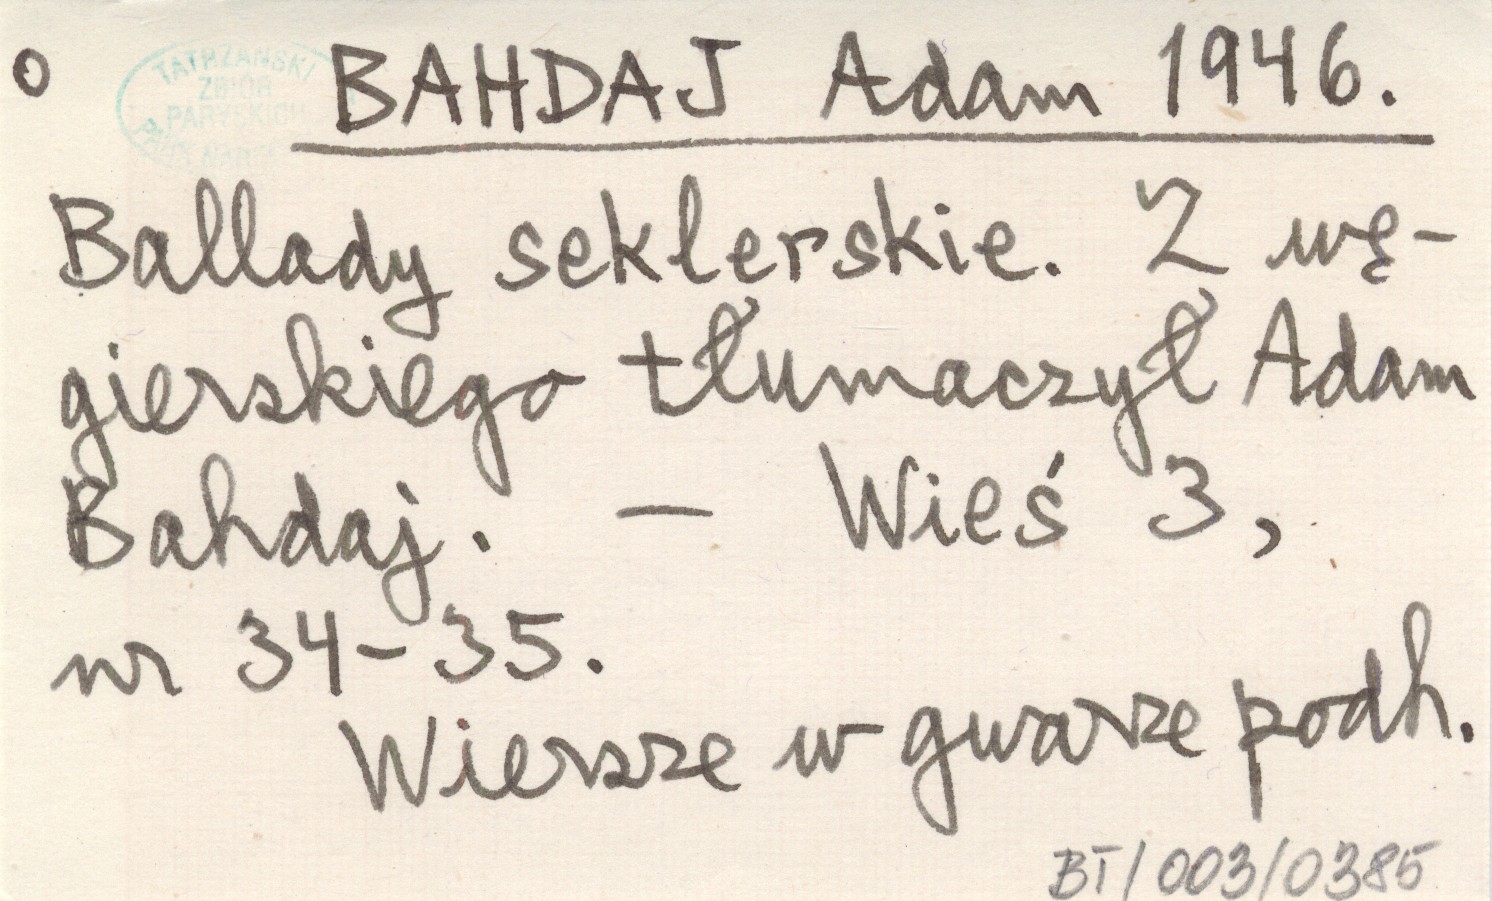 o BAHDAJ Adam 1946.
TATRZAŃSKI
ZBIÓR
PARYSKICH
Ballady seklerskie. Z wę-
gierskiego tłumaczył Adam
Bahdaj. — Wieś 3,
nr 34-35.
Wiersze w gwarze podh.
BT/003/0385